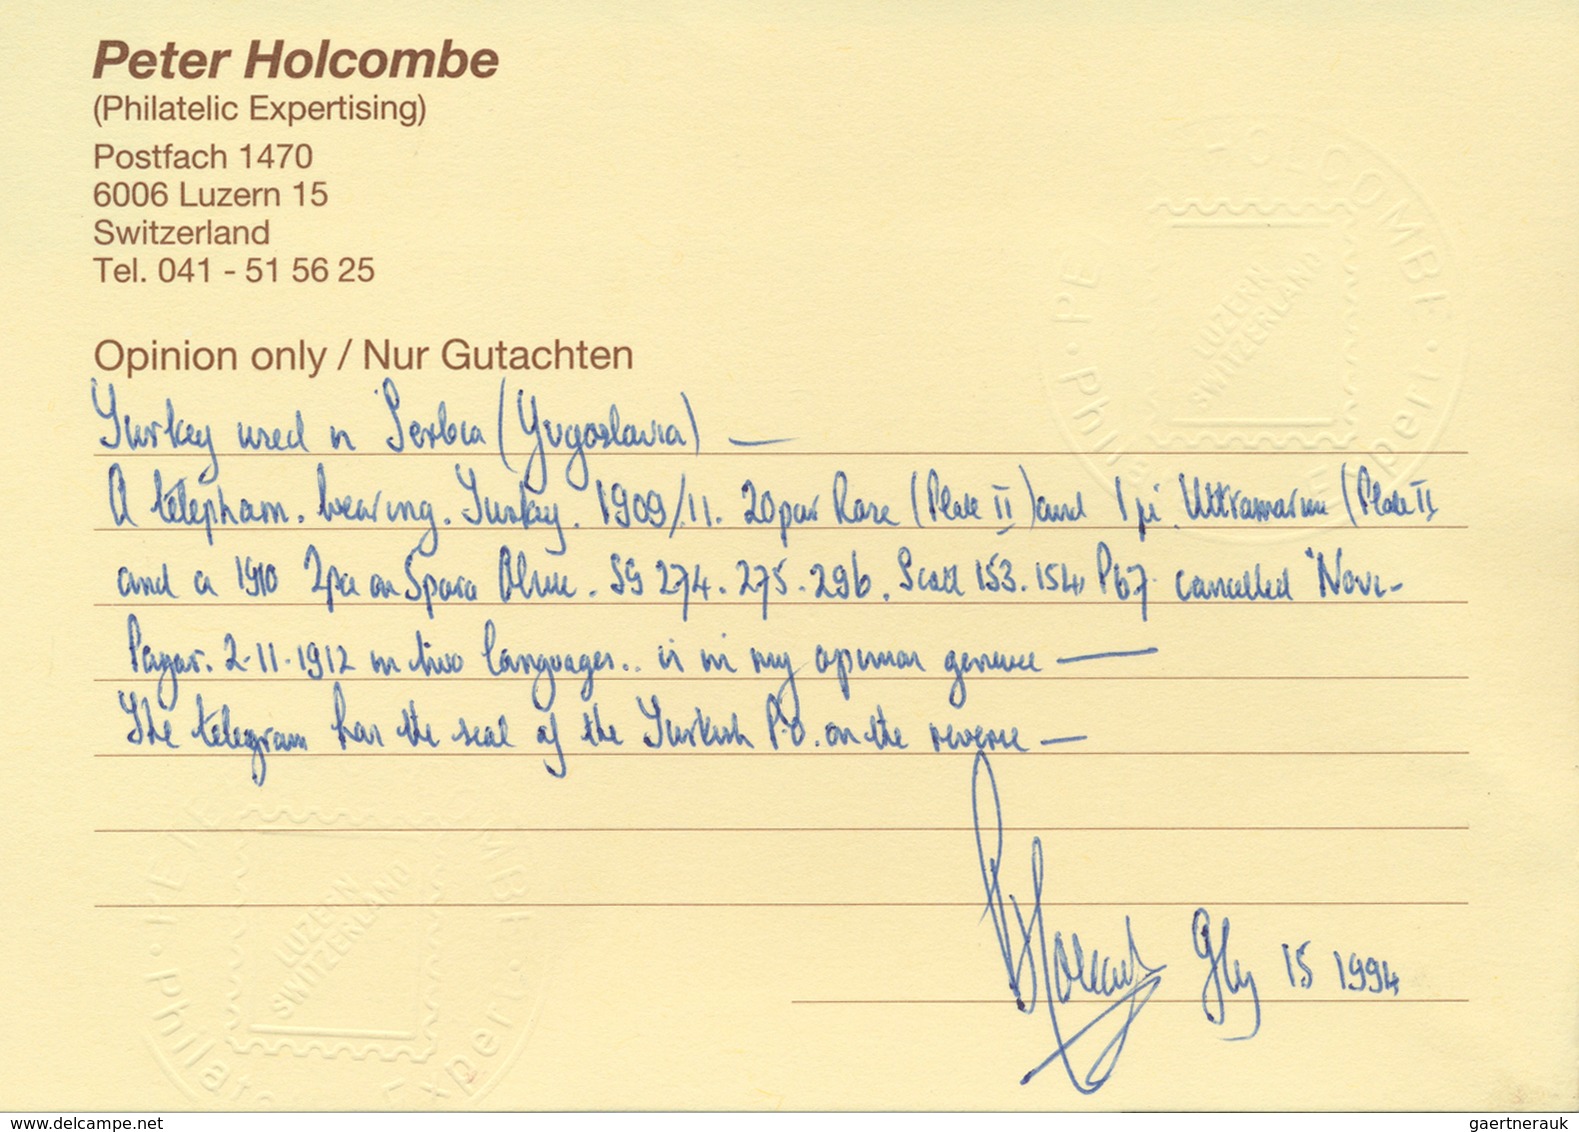 Peter Holcombe
(Philatelic Expertising)
Postfach 1470
6006 Luzern 15
Switzerland
Tel. 041 - 51 56 25
PETER HOLCOMBE
LUZERN
SWITZERLAND
Philatelic Expert
Opinion only / Nur Gutachten
Turkey used in Serbia (Yugoslavia) —
A telepham. bearing. Turkey. 1909/11. 20par Rose (Plate II) and 1pi. Ultramarine (Plate II
and a 1910 2pa on 5para Olive. SG 274. 275. 296. Scott 153. 154. P67. cancelled "Novi-
Pazar. 2-11-1912 in two languages.. is in my opinion genuine —
The telegram has the seal of the Turkish P.O. on the reverse —
PHolcombe July 15 1994
PETER HOLCOMBE
LUZERN
SWITZERLAND
Philatelic Expert
www.delcampe.net
gaertnerauk